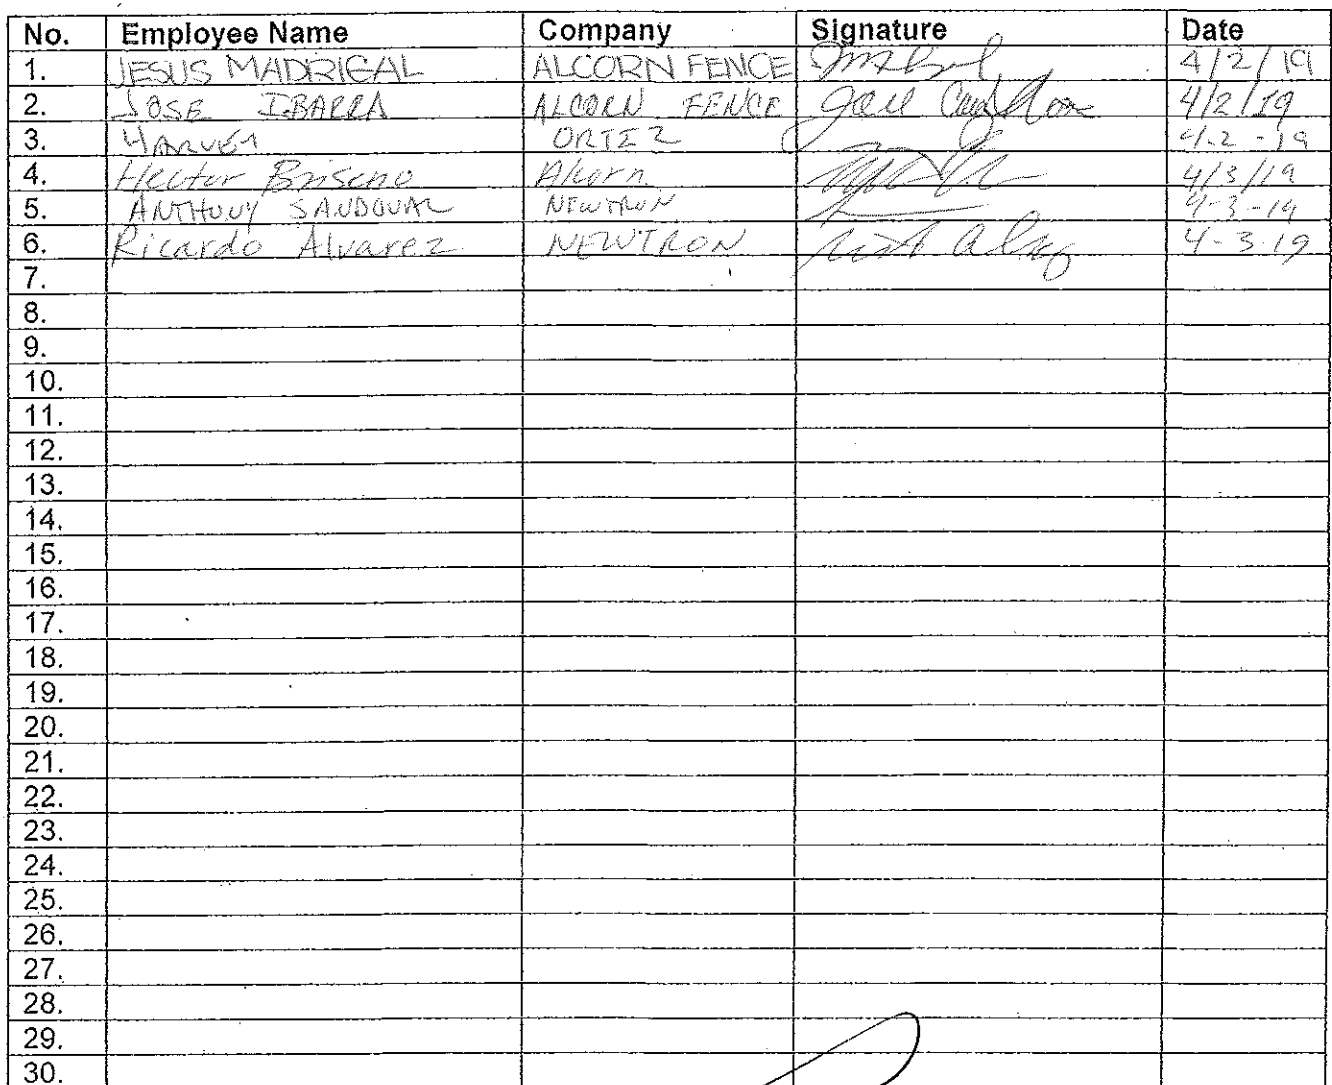 No. Employee Name Company Signature Date
1. JESUS MADRIGAL ALCORN FENCE 4/2/19
2. JOSE IBARRA ALCORN FENCE 4/2/19
3. ORTIZ 4-2-19
4. Hector Briseno Alcorn 4/3/19
5. ANTHONY SANDOVAL NEWTRON 4-3-19
6. Ricardo Alvarez NEWTRON 4-3-19
7.
8.
9.
10.
11.
12.
13.
14.
15.
16.
17.
18.
19.
20.
21.
22.
23.
24.
25.
26.
27.
28.
29.
30.